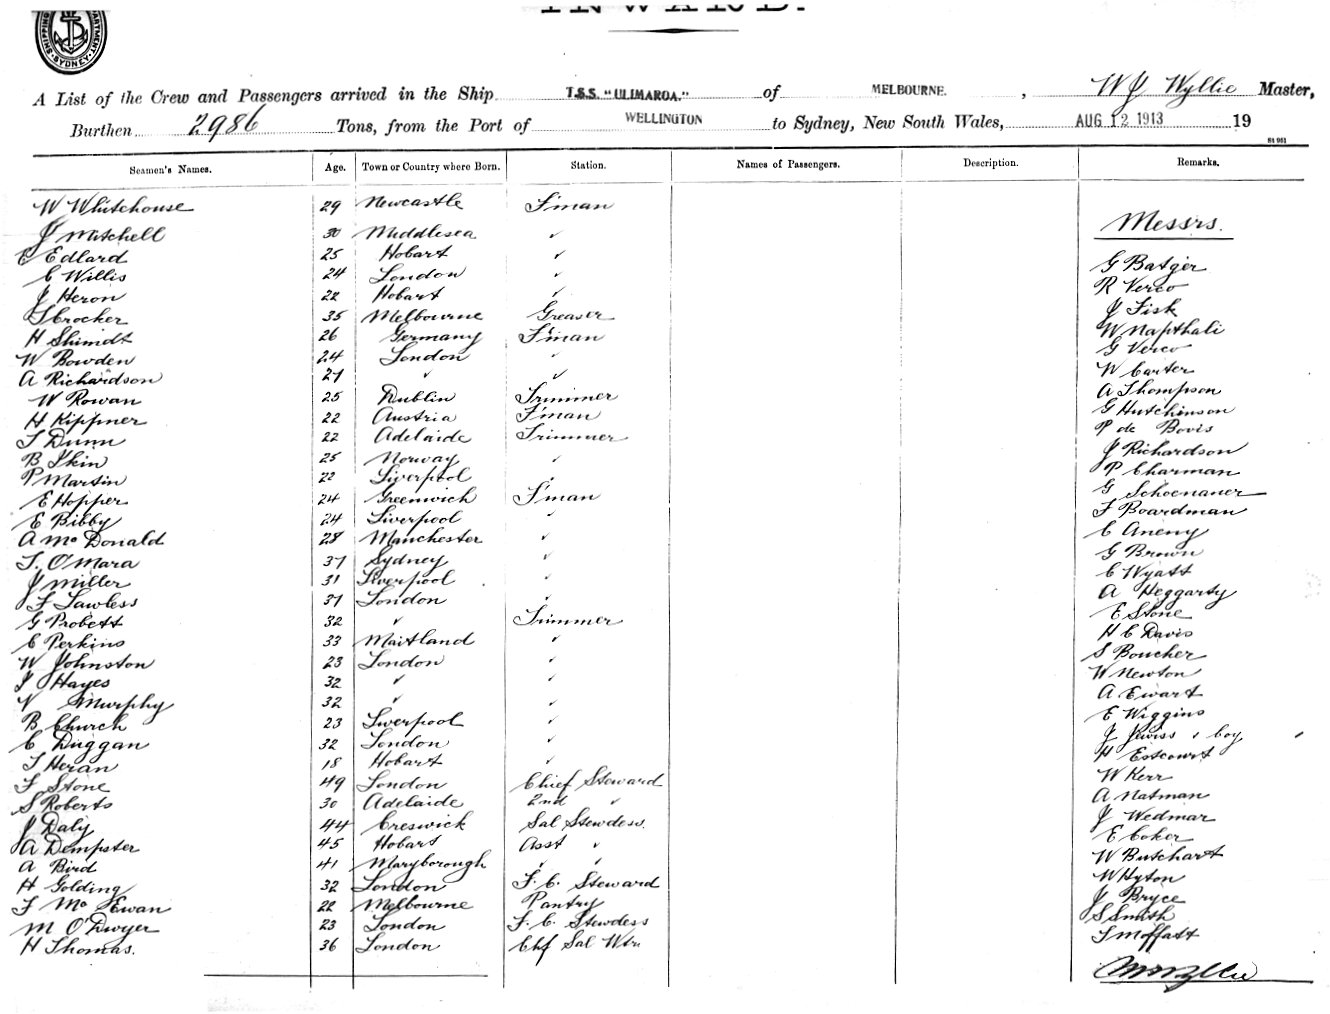 INWARD.
SHIPPING DEPARTMENT SYDNEY
A List of the Crew and Passengers arrived in the Ship T.S.S. "ULIMAROA." of MELBOURNE. , W J Wyllie Master,
Burthen 2986 Tons, from the Port of WELLINGTON to Sydney, New South Wales, AUG 12 1913 19
Seamen's Names. Age. Town or Country where Born. Station. Names of Passengers. Description. Remarks.
W Whitehouse 29 Newcastle F'man
Messrs.
J Mitchell 30 Middlesea ✓
E Edlard 25 Hobart ✓ G Batger
C Willis 24 London ✓ R Verco
J Heron 22 Hobart ✓ J Fisk
S Crocker 35 Melbourne Greaser W Napthali
H Shimdt 26 Germany F'man G Verco
W Bowden 24 London ✓ W Carter
A Richardson 27 ✓ ✓ A Thompson
W Rowan 25 Dublin Trimmer G Hutchinson
H Kippner 22 Austria F'man P de Bovis
T Dunn 22 Adelaide Trimmer J Richardson
B Skin 25 Norway ✓ P Charman
P Martin 22 Liverpool ✓ G Schoenauer
E Hopper 24 Greenwich F'man F Boardman
E Bibby 24 Liverpool ✓ C Aneny
A McDonald 28 Manchester ✓ G Brown
T. O'Mara 37 Sydney ✓ C Wyatt
J Miller 31 Liverpool ✓ A Heggarty
F Lawless 37 London ✓ E Stone
G Probett 32 ✓ Trimmer H C Davis
C Perkins 33 Maitland ✓ S Boucher
W Johnston 23 London ✓ W Newton
J Hayes 32 ✓ ✓ A Ewart
N Murphy 32 ✓ ✓ E Wiggins
B Church 23 Liverpool ✓ J Jewiss & boy
C Duggan 32 London ✓ H Estcourt
T Heran 18 Hobart ✓ W Kerr
F Stone 49 London Chief Steward A Natman
S Roberts 30 Adelaide 2nd ✓ J Wedmar
J Daly 44 Creswick Sal Stewdess. E Coker
A Dempster 45 Hobart Asst ✓ W Butchart
A Bird 41 Maryborough ✓ ✓ W Hyton
H Golding 32 London F. C. Steward J Bryce
F McEwan 22 Melbourne Pantry S Smith
M O'Dwyer 23 London F. C. Stewdess T Moffatt
H Thomas. 36 London Chf Sal Wtr
W J Wyllie